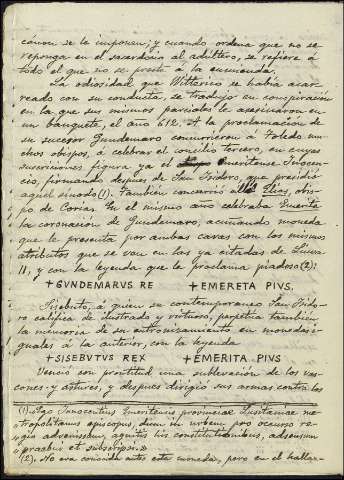 cánon se le imponen; y cuando ordena que no se
reponga en el sacerdocio al adúltero, se refiere á
todo el que no se presta á la enmienda.
La odiosidad que Witterico se habia acar-
reado con su conducta, se tradujo en conspiracion
en la que sus mismos parciales le asesinaron en
un banquete, el año 612. A la proclamacion de
su sucesor Gundemaro concurrieron á Toledo mu-
chos obispos, á celebrar el concilio tercero, en cuyas
suscriciones figura ya el emeritense Inocen-
cio, firmando despues de San Isidoro, que presidió
aquel sínodo (1). Tambien concurrió allá Elias, obis-
po de Coria. En el mismo año celebraba Emerita
la coronacion de Gundemaro, acuñando moneda
que le presenta por ambas caras con los mismos
atributos que se ven en las ya citadas de Liuva
II, y con la leyenda que le proclama piadoso (2):
+ GVNDEMARVS RE + EMERETA PIVS,
Sisebuto, á quien su contemporaneo San Isido-
ro califica de ilustrado y virtuoso, perpetúa tambien
la memoria de su entronizamiento en monedas i-
guales á la anterior, con la leyenda
+ SISEBVTVS REX + EMERITA PIVS
Venció con prontitud una sublevacion de los vas-
cones y astures, y despues dirigió sus armas contra los
(1). Ego Innocentius Emeritensis, provinciae Lusitaniae me-
tropolitanus episcopus, dum in urbem pro occursu re-
gio advenissem, agnitis his constitutionibus, adsensum
praebui et subscripsi.
(2). No era conocida antes esta moneda, pero en el hallaz-